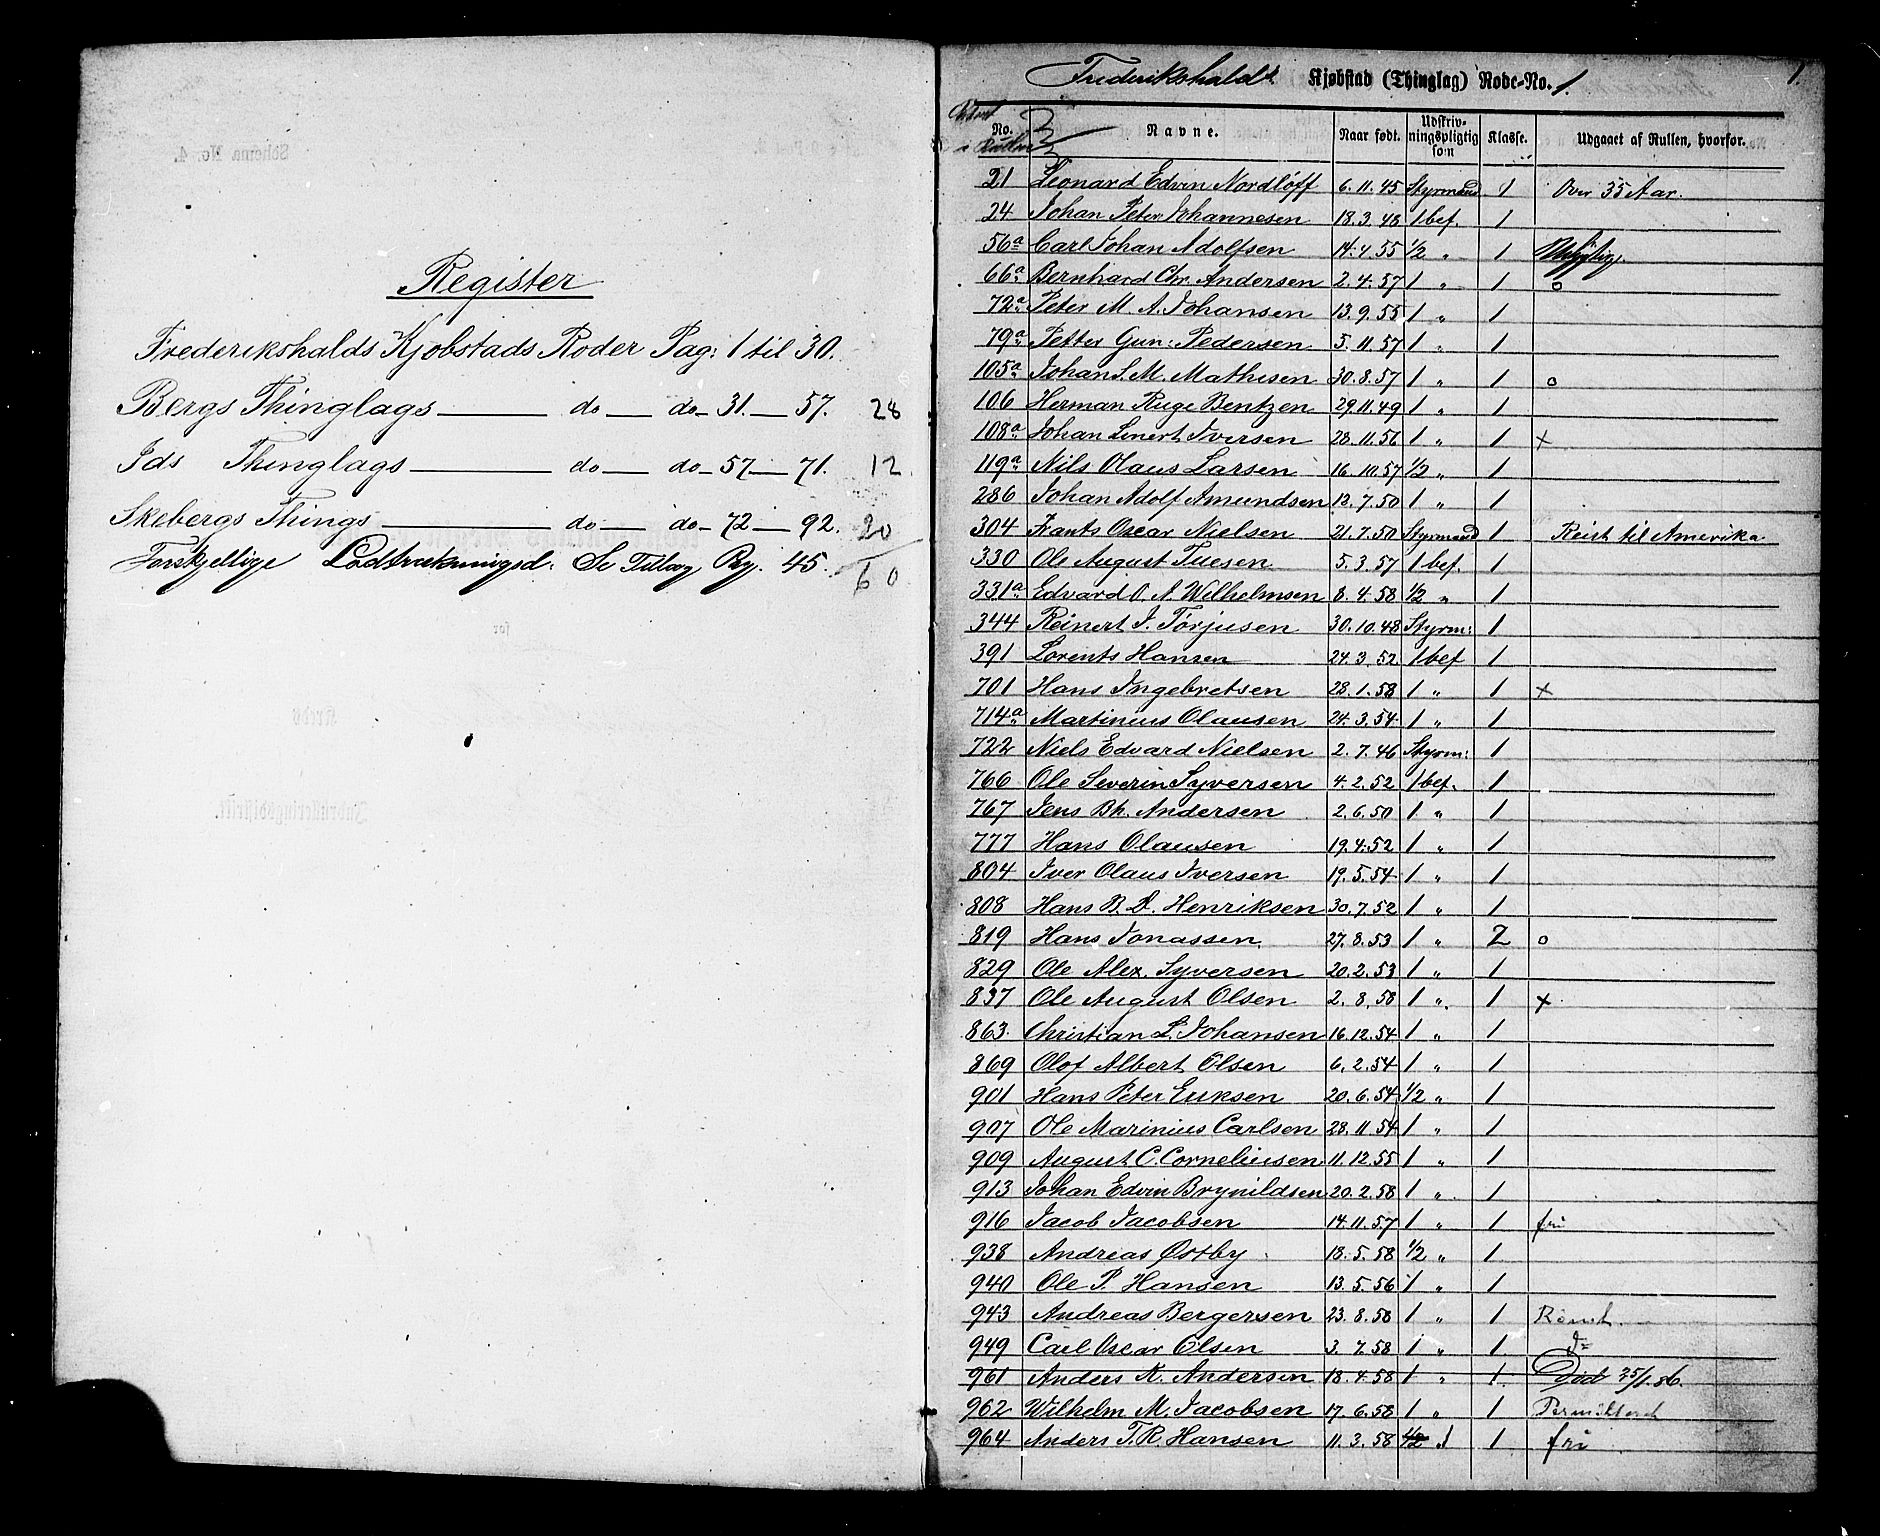 Register
Frederikshalds Kjøbstads Roder Pag: 1 til 30.
Bergs Thinglags — do — do — 31. — 57. 28
Ids Thinglags — do — do — 57 — 71. 12.
Skebergs Things — do — do — 72 — 92. 20
Forskjellige Lodtrækningsd. Se Tillæg Pg. 45. 60
Schema No. 4.
for
Kreds
Indrulleringsdistrikt.
1.
Frederikshalds Kjøbstad (Thinglag) Rode-No. 1.
No. i Rullen Navne. Naar født. Udskrivningspligtig som Klasse. Udgaaet af Rullen, hvorfor.
21 Leonard Edvin Nordlöff 6.11.45 Styrmand 1 Over 35 Aar.
24 Johan Peter Johannesen 18.3.48 1 bef. 1
56a Carl Johan Adolfsen 14.4.55 1/2 " 1
66a Bernhard Chr. Andersen 2.4.57 1 " 1 o
72a Peter M. A. Johansen 13.9.55 1 " 1
79a Petter Gun: Pedersen 5.11.57 1 " 1
105a Johan S. M. Mathisen 30.8.57 1 " 1 o
106 Herman Ruge Bentzen 29.11.49 1 " 1
108a Johan Linert Iversen 28.11.56 1 " 1 x
119a Nils Olaus Larsen 16.10.57 1/2 " 1
286 Johan Adolf Amundsen 13.7.50 1 " 1
304 Frants Oscar Nielsen 21.7.50 Styrmand 1 Reist til Amerika.
330 Ole August Tuesen 5.3.57 1 bef. 1
331a Edvard O. A. Wilhelmsen 8.4.58 1/2 " 1
344 Reinert J. Torjusen 30.10.48 Styrm: 1
391 Lorents Hansen 24.3.52 1 bef 1
701 Hans Ingebretsen 28.1.58 1 " 1 x
714a Martinius Olausen 24.3.54 1 " 1
722 Niels Edvard Nielsen 2.7.46 Styrm: 1
766 Ole Severin Syversen 4.2.52 1 bef. 1
767 Jens Bh. Andersen 2.6.50 1 " 1
777 Hans Olausen 19.4.52 1 " 1
804 Iver Olaus Iversen 19.5.54 1 " 1
808 Hans B. D. Henriksen 30.7.52 1 " 1
819 Hans Jonassen 27.8.53 1 " 2 o
829 Ole Alex. Syversen 20.2.53 1 " 1
837 Ole August Olsen 2.8.58 1 " 1 x
863 Christian L. Johansen 16.12.54 1 " 1
869 Olof Albert Olsen 6.2.54 1 " 1
901 Hans Peter Eriksen 20.6.54 1/2 " 1
907 Ole Marinius Carlsen 28.11.54 1 " 1
909 August C. Corneliussen 11.12.55 1 " 1
913 Johan Edvin Brynildsen 20.2.58 1 " 1
916 Jacob Jacobsen 14.11.57 1 " 1 fri
938 Andreas Østby 18.5.58 1/2 " 1
940 Ole P. Hansen 13.5.56 1 " 1
943 Andreas Bergersen 23.8.58 1 " 1 Rømt.
949 Carl Oscar Olsen 3.7.58 1 " 1 do
961 Anders K. Andersen 18.4.58 1 " 1 Død 25/1.86.
962 Wilhelm M. Jacobsen 17.6.58 1 " 1 Permitteret
964 Anders T. R. Hansen 11.3.58 1/2 " 1 1 fri